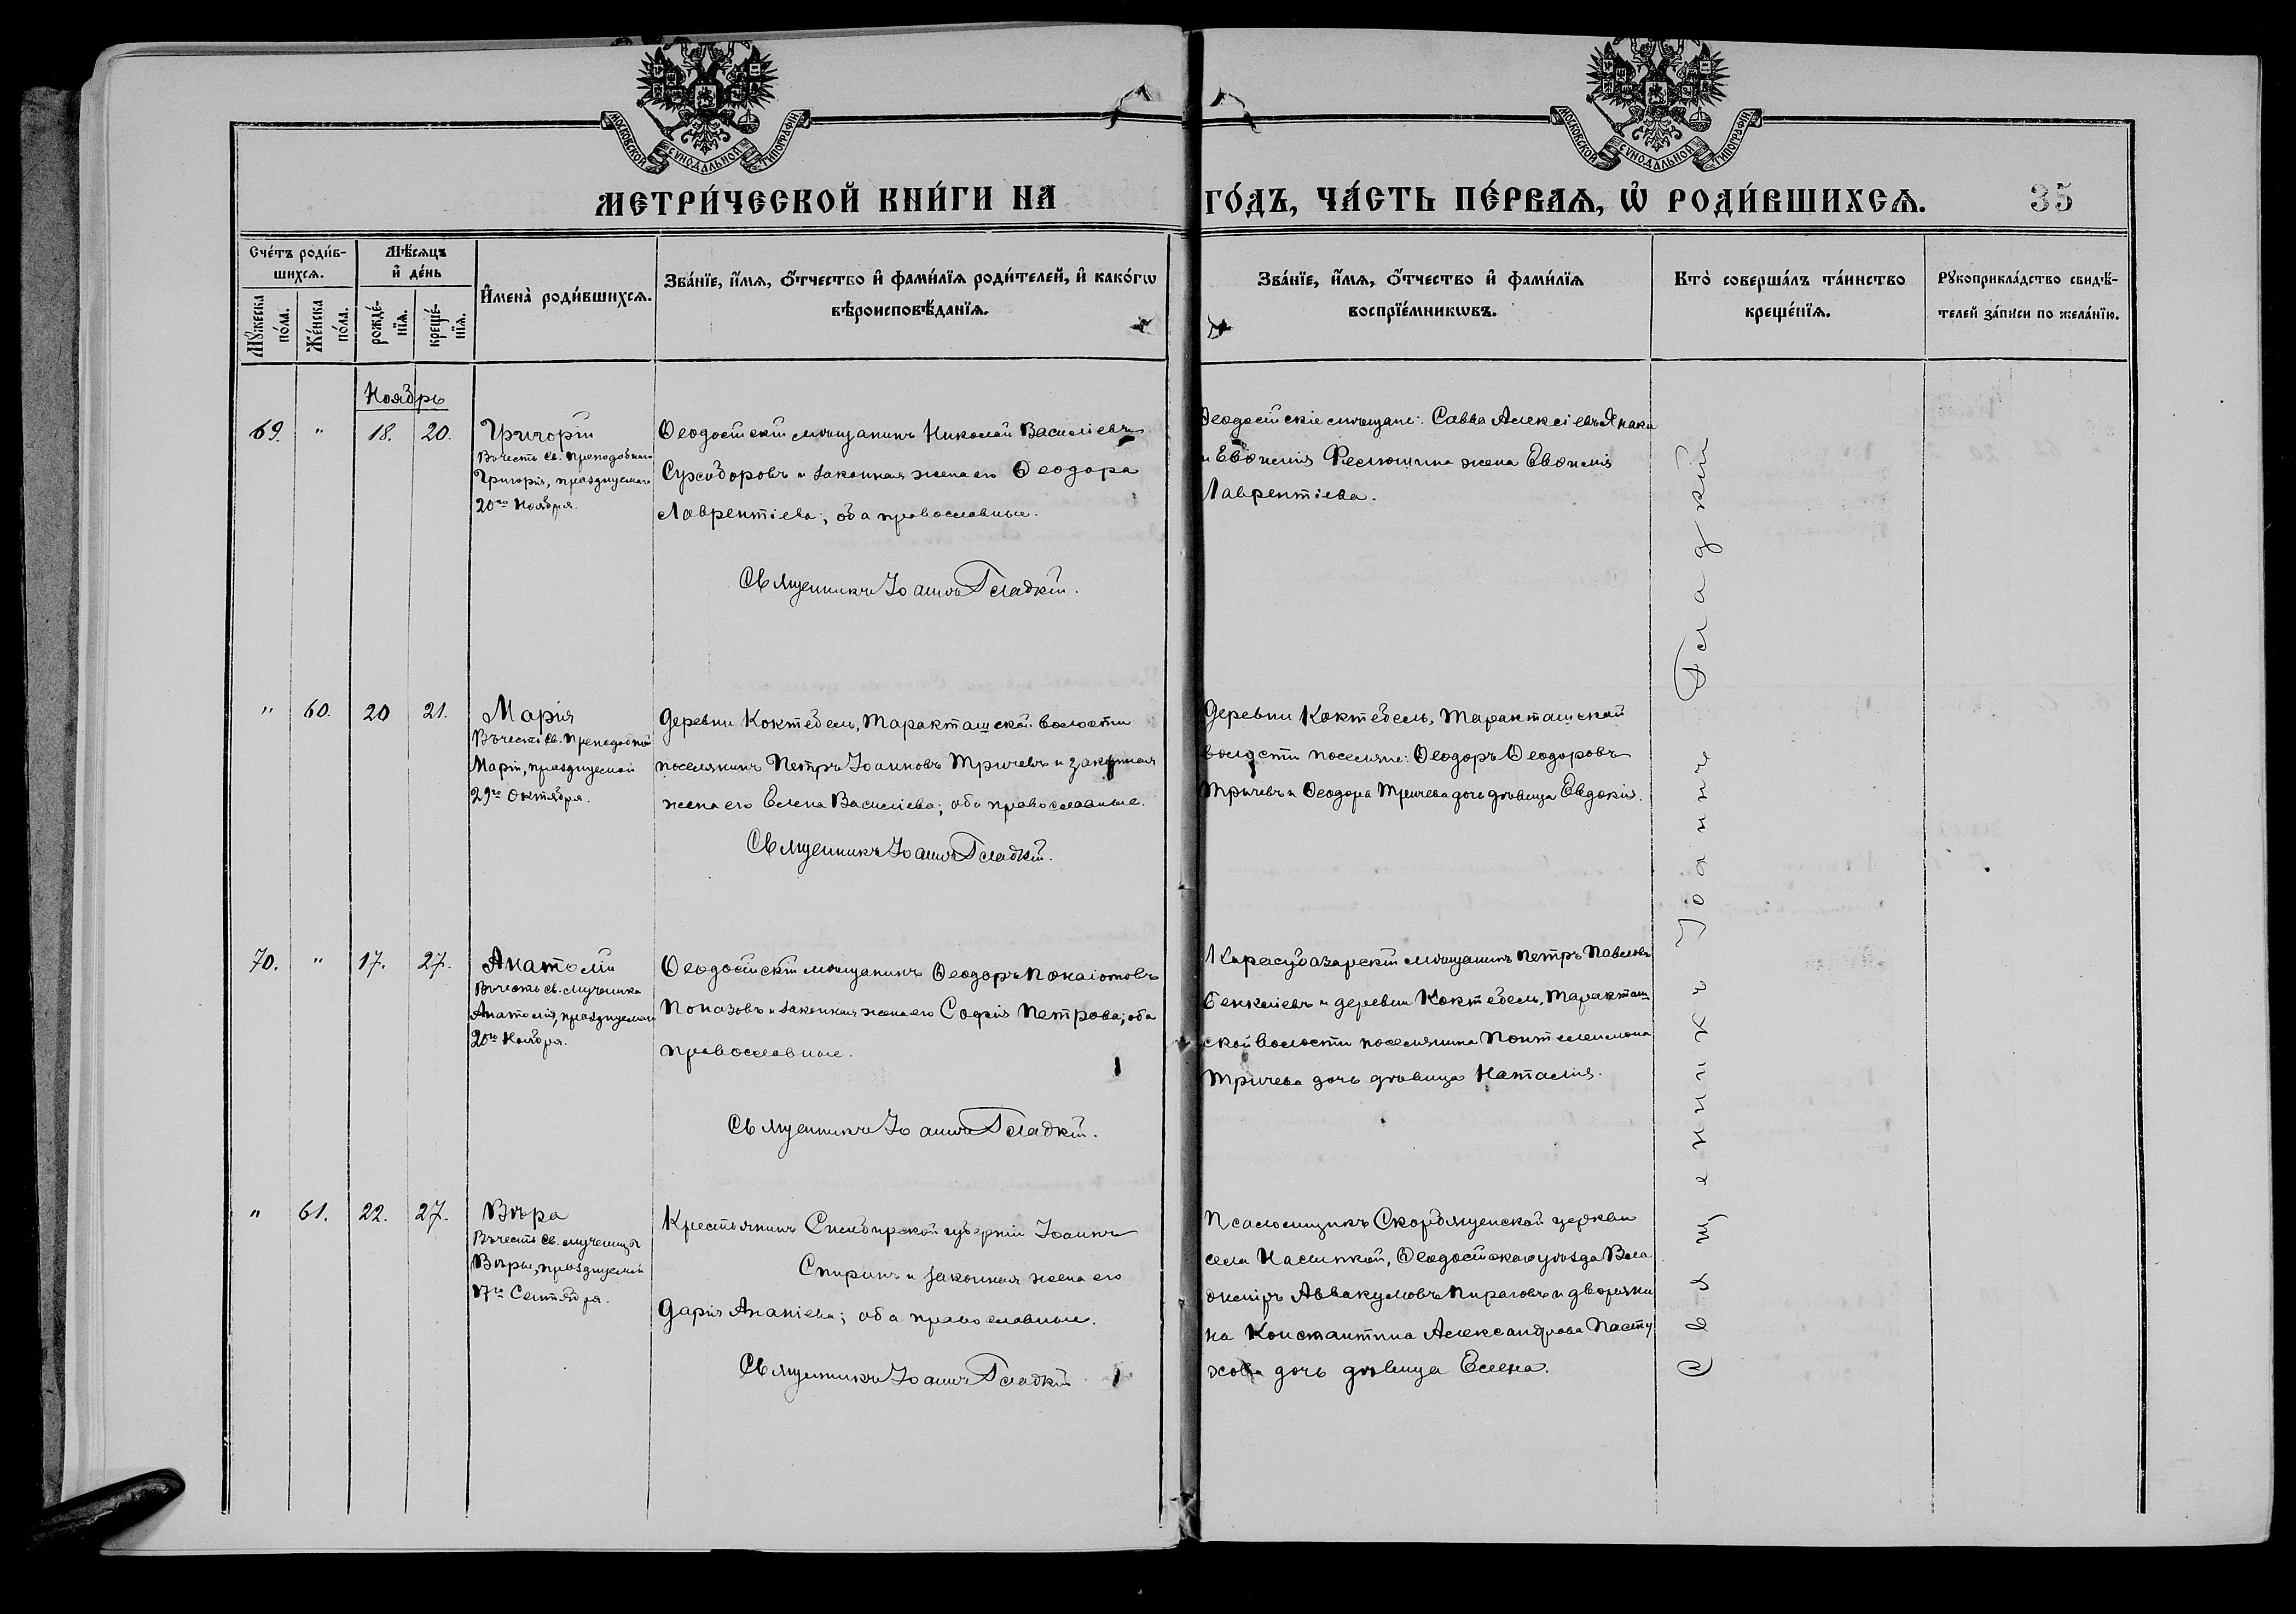 МОСКОВСКОЙ СѴНОДАЛЬНОЙ ТИПОГРАФІИ
МОСКОВСКОЙ СѴНОДАЛЬНОЙ ТИПОГРАФІИ
МЕТРИ́ЧЕСКОЙ КНИ́ГИ НА ГО́ДЪ, ЧА́СТЬ ПЕ́РВАѦ, Ѡ҆ РОДИ́ВШИХСѦ. 35
Счéтъ роди́в-
шихсѧ.
Мꙋ́жеска
по́ла.
Же́нска
по́ла.
Мѣ́сѧцъ
и҆ де́нь
рожде́-
нїѧ.
креще́-
нїѧ.
И҆мена̀ роди́вшихсѧ.
Зва́нїе, и҆́мѧ, ѻ҆́тчество и҆ фами́лїѧ роди́телей, и҆ како́гѡ
вѣроисповѣ́данїѧ.
Зва́нїе, и҆́мѧ, ѻ҆́тчество и҆ фами́лїѧ
воспрїе́мникѡвъ.
Кто̀ соверша́лъ та́инство
креще́нїѧ.
Рꙋкоприкла́дство свидѣ́-
телей за́писи по жела́нїю.
Ноябрь
69. " 18. 20.
Григорій
Въ честь Св. Преподобнаго
Григорія, празднуемаго
20го Ноября.
Ѳеодосійскій мѣщанинъ Николай Василіевъ
Сухоборовъ и законная жена его Ѳеодора
Лаврентіева; оба православные.
Священникъ Іоаннъ Гладкій.
Ѳеодосійскіе мѣщане: Савва Алексіевъ Янаки
и Евѳимія Феслюшина жена Евѳимія
Лаврентіева.
" 60. 20 21.
Марія
Въ честь Св. Преподобной
Маріи, празднуемой
29го Октября.
Деревни Коктебель, Таракташской волости
поселянинъ Петръ Іоанновъ Тричевъ и законная
жена его Елена Василіева; оба православные.
Священникъ Іоаннъ Гладкій.
Деревни Коктебель, Таракташской
волости поселяне: Ѳеодоръ Ѳеодоровъ
Тричевъ и Ѳеодора Тричева дочь дѣвица Евдокія.
70. " 17. 27.
Анатолій
Въ честь св. мученика
Анатолія, празднуемаго
20го Ноября.
Ѳеодосійскій мѣщанинъ Ѳеодоръ Понаіотовъ
Поназовъ и законная жена его Софія Петрова; оба
православные.
Священникъ Іоаннъ Гладкій.
Карасубазарскій мѣщанинъ Петръ Павловъ
Бенклiевъ и деревни Коктебель, Таракташ
ской волости поселянина Понтелеимона
Тричева дочь дѣвица Наталія.
" 61. 22. 27.
Вѣра
Въ честь Св. мученицы
Вѣры, празднуемой
17го Сентября.
Крестьянинъ Симбирской губерніи Іоаннъ
Спиринъ и законная жена его
Дарія Ананіева; оба православные.
Священникъ Іоаннъ Гладкій
Псаломщикъ Скорбященской церкви
села Насыпкой, Ѳеодосійскаго уѣзда Вла
диміръ Аввакумовъ Пираговъ и дворяни
на Константина Александрова Пасту
хова дочь дѣвица Елена.
Священникъ Іоаннъ Гладкій